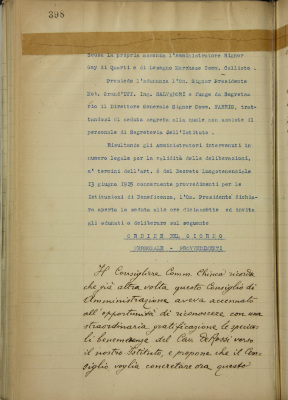 398
Scusa la propria assenza l'Amministratore Signor
Gay di Quarti e di Lesegno Marchese Comm. Calisto.
Presiede l'adunanza l'On. Signor Presidente
Dot. Grand'Uff. Ing. SALVADORI e funge da Segreta-
rio il Direttore Generale Signor Comm. , trat-
tandosi di seduta segreta alla quale non assiste il
personale di Segreteria dell'Istituto.
Risultando gli Amministratori intervenuti in
numero legale per la validità delle deliberazioni,
a' termini dell'art. 5 del Decreto Luogotenenziale
13 giugno 1915 concernente provvedimenti per le
Istituzioni di Beneficenza, l'On. Presidente dichia-
ra aperta la seduta alle ore diciassette ed invita
gli adunati a deliberare sul seguente
ORDINE DEL GIORNO
PERSONALE - PROVVEDIMENTI
Il Consigliere Comm. Chinca ricorda
che già altra volta questo Consiglio di
Amministrazione aveva accennato
all'opportunità di riconoscere con una
straordinaria gratificazione le specia-
li benemerenze del Cav. De Rossi verso
il nostro Istituto, e propone che il Con-
siglio voglia concretare ora questo